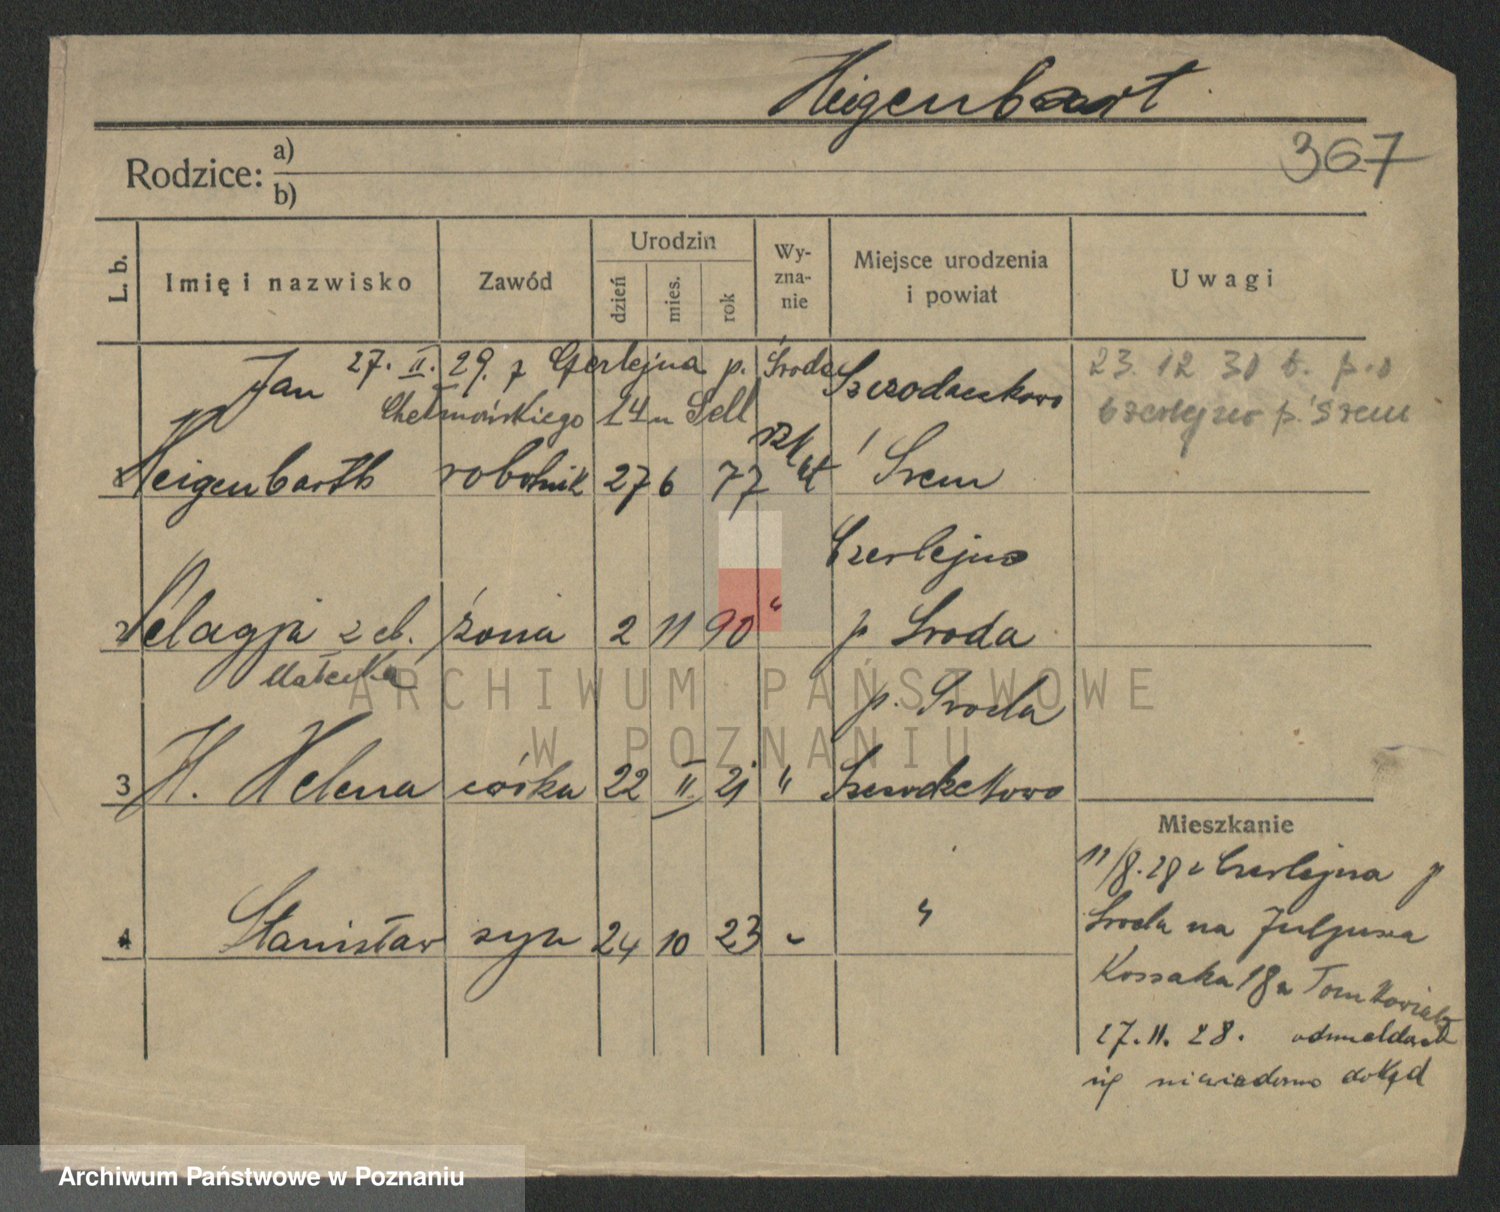 Heigenbart
367
Rodzice: a)
b)
L. b. Imię i nazwisko Zawód Urodzin dzień mies. rok Wy-zna-nie Miejsce urodzenia i powiat Uwagi
27. II. 29. z Czerlejna p. Środa
Chełmońskiego 14 u Sell
23. 12 30 b. p.o
Czerlejno p. Śrem
Jan
Heigenbarth robotnik 27 6 77 rz/kat Śrem
Czerlejno
2 Pelagja z d. żona 2 11 90 " p Środa
Małecka
p. Środa
3 H. Helena córka 22 II. 21 "
Mieszkanie
4 Stanisław syn 24 10 23 " "
11/8. 28 z Czerlejna p
Środa na Juljusza
Kossaka 18 u Tomkowiak
27. 11. 28. odmeldował
się niewiadomo dokąd
ARCHIWUM PAŃSTWOWE
W POZNANIU
Archiwum Państwowe w Poznaniu